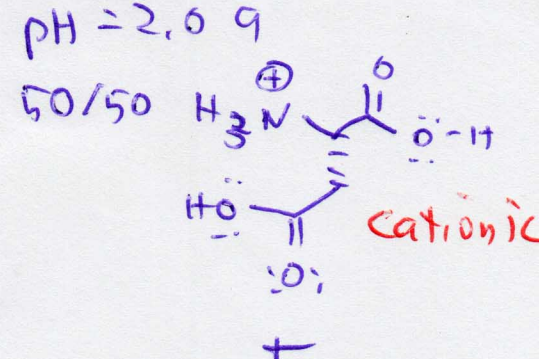 pH = 2.09
50/50
H₃N ⊕
O
Ö-H
HÖ
:O:
cationic
+